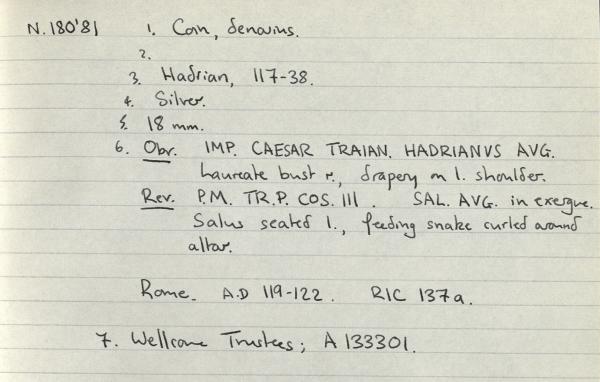 N.180'81 1. Coin, denarius.
2.
3. Hadrian, 117-38.
4. Silver.
5. 18 mm.
6. Obv. IMP. CAESAR TRAIAN. HADRIANVS AVG.
Laureate bust r., drapery on l. shoulder.
Rev. P.M. TR.P. COS. III. SAL. AVG. in exergue.
Salus seated l., feeding snake curled around
altar.
Rome. A.D 119-122. RIC 137a.
7. Wellcome Trustees; A 133301.